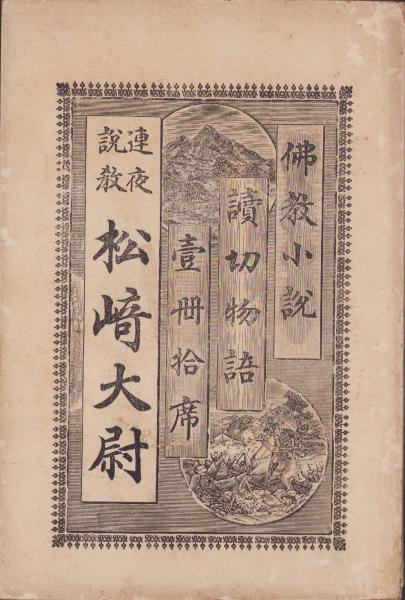 佛教小説
讀切物語
壹冊拾席
連夜
説教
松﨑大尉